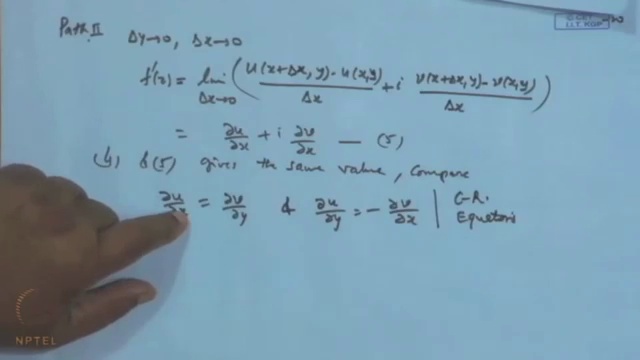 Path II Δy→0, Δx→0
f'(z) = lim Δx→0 ( u(x+Δx, y) - u(x,y) / Δx + i v(x+Δx, y) - v(x,y) / Δx )
= ∂u/∂x + i ∂v/∂x — (5)
(4) & (5) gives the same value, Compare
∂u/∂x = ∂v/∂y & ∂u/∂y = - ∂v/∂x | C-R.
Equations
I.I.T. KGP
NPTEL